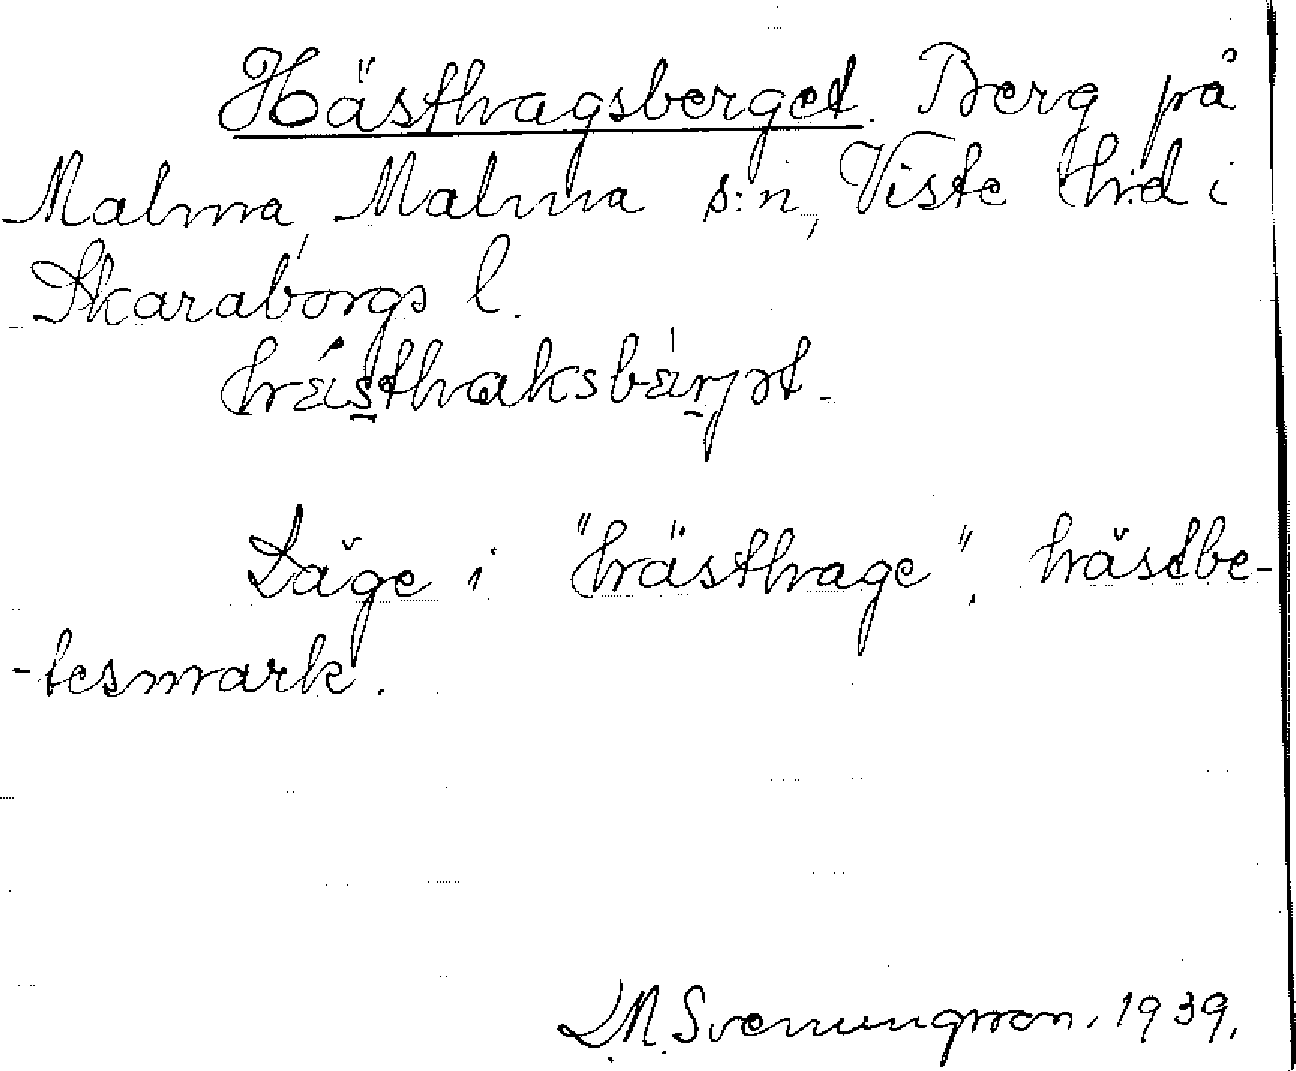 Hästhagsberget. Berg på
Malma, Malma s:n, Viste hd i
Skaraborgs l.
hä́sthaksbä̀rjət.
Läge i "hästhage", hästbe-
-tesmark.
L.M. Svenungsson. 1939.